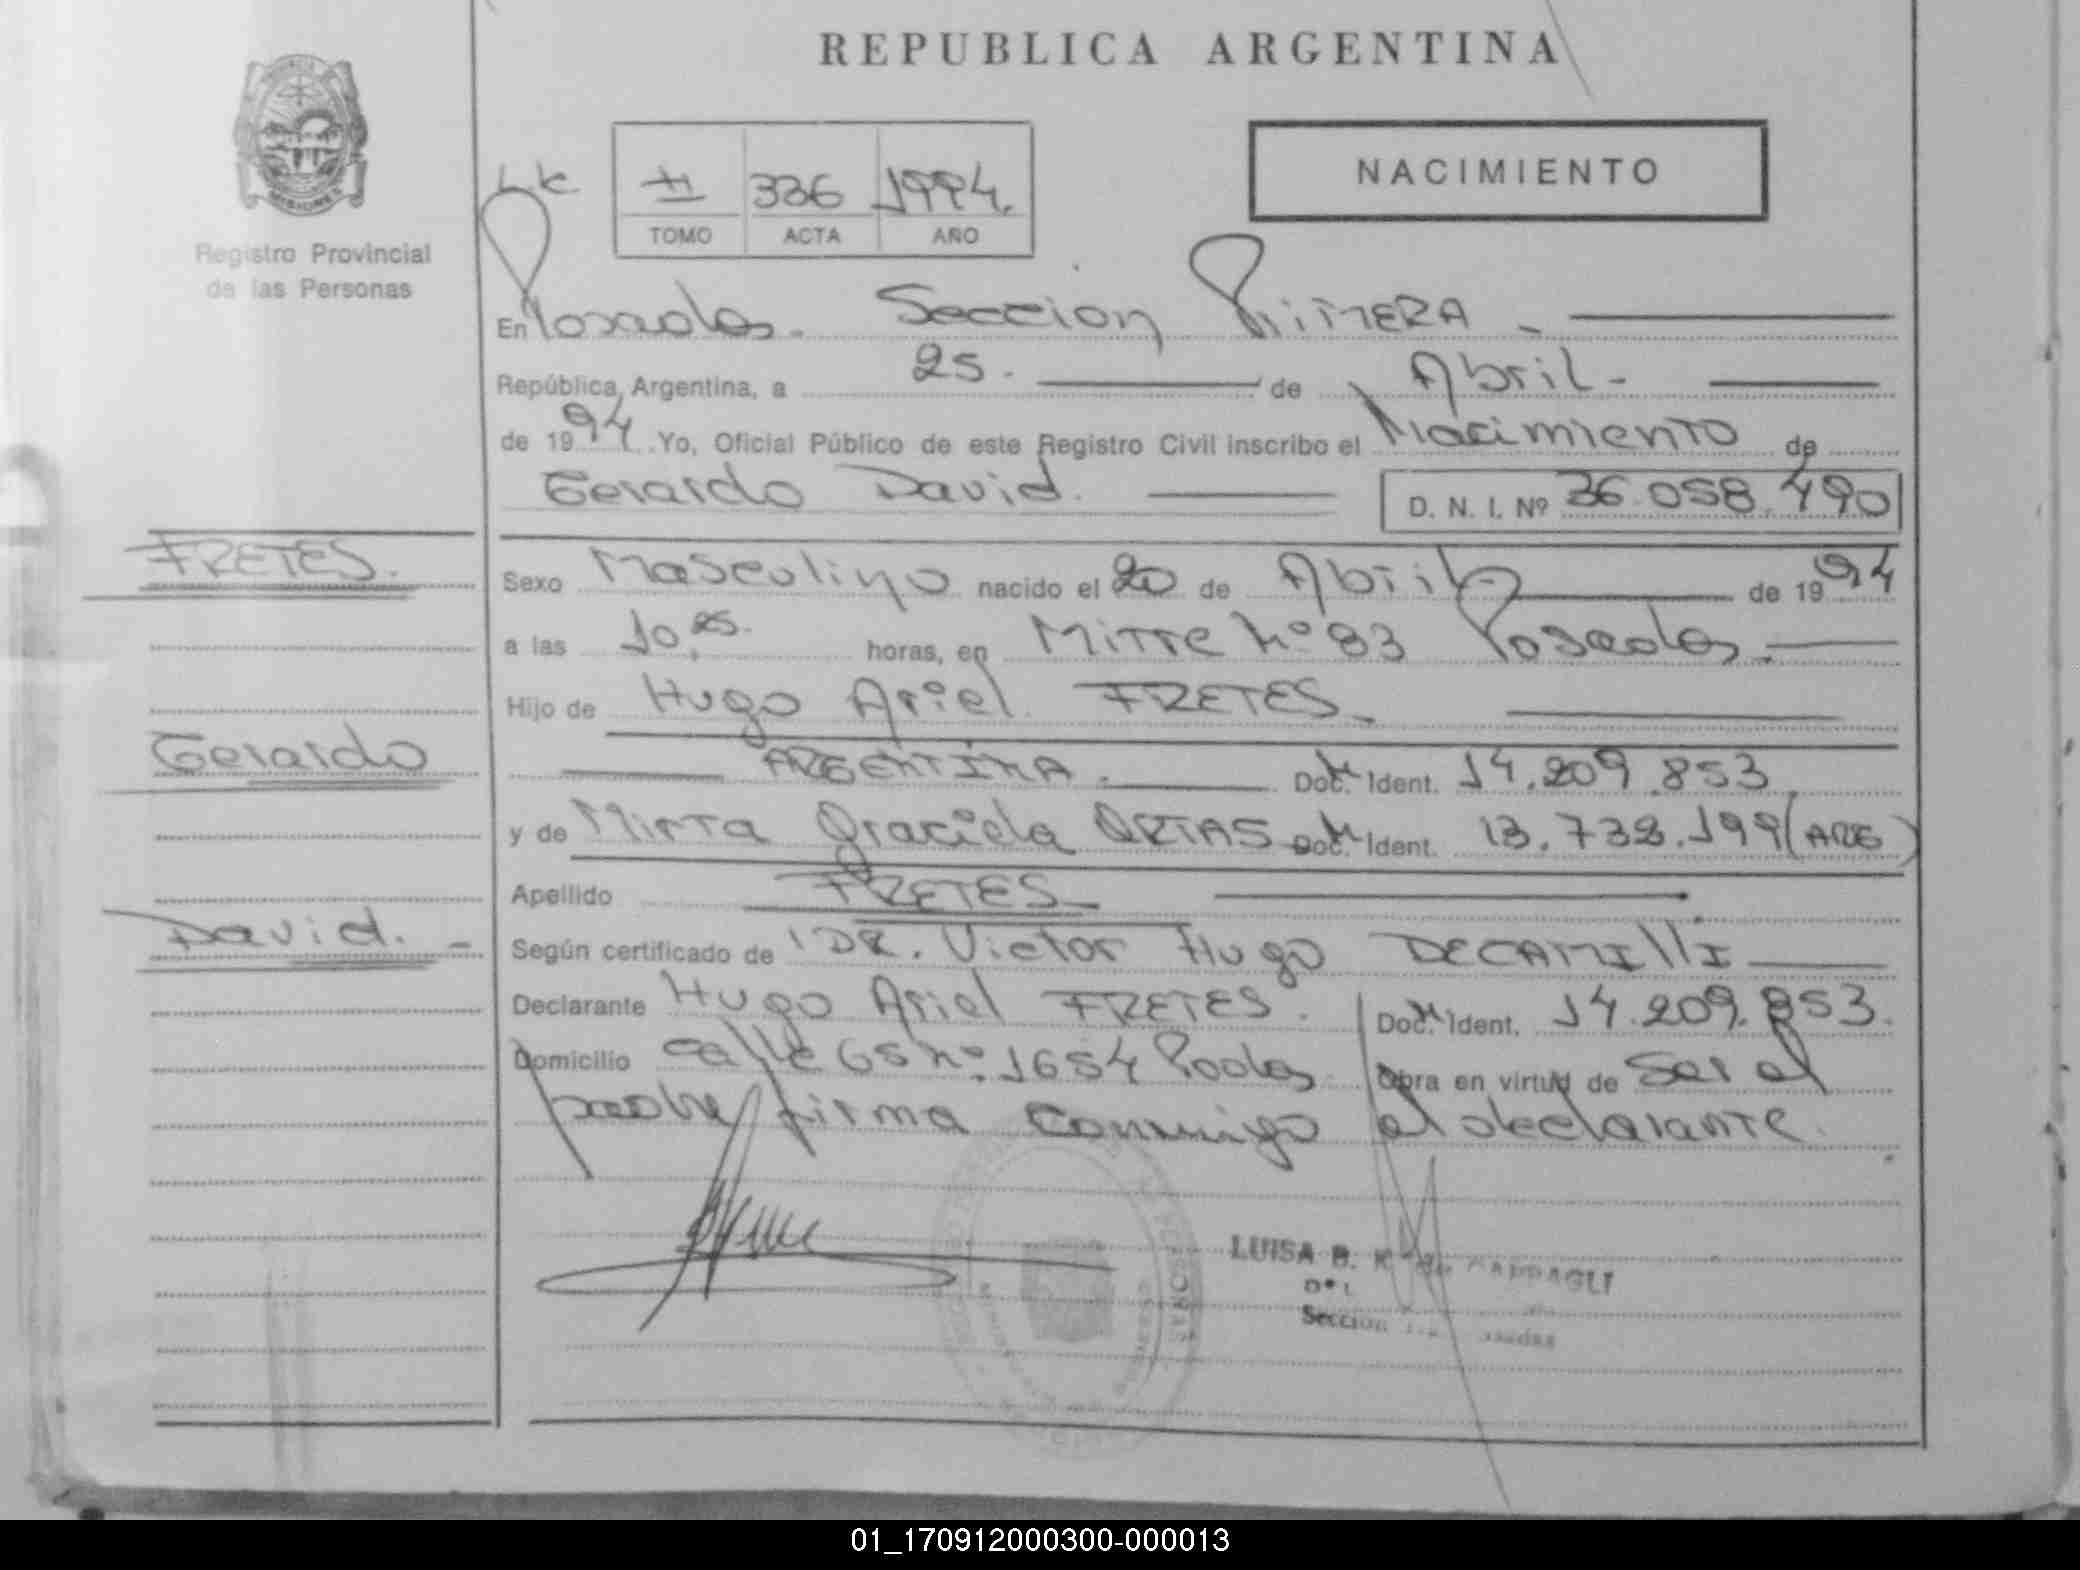 REPUBLICA ARGENTINA
MISIONES
Registro Provincial
de las Personas
NACIMIENTO
336 1994.
TOMO ACTA AÑO
En Posadas. Seccion PRIMERA -
República Argentina, a 25. de Abril -
de 1994 Yo, Oficial Público de este Registro Civil inscribo el Nacimiento de
Gerardo David. D. N. I. Nº 36.058.490
FRETES.
Sexo Masculino nacido el 20 de Abril de 1994
a las 10,25. horas, en Mitre Nº 83 Posadas.
Hijo de Hugo Ariel FRETES -
Gerardo
ARGENTINA. Doc. Ident. 14.209.853
y de Mirta Graciela ORTAS Doc. Ident. 13.732.199 (ARG)
Apellido FRETES -
David. -
Según certificado de DR. Victor Hugo DECAMILLI
Declarante Hugo Ariel FRETES. Doc. Ident. 14.209.853.
Domicilio calle 65 Nº 1654 Podas Obra en virtud de ser el
padre firma conmigo el declarante.
LUISA B. K de
Seccion
01_170912000300-000013